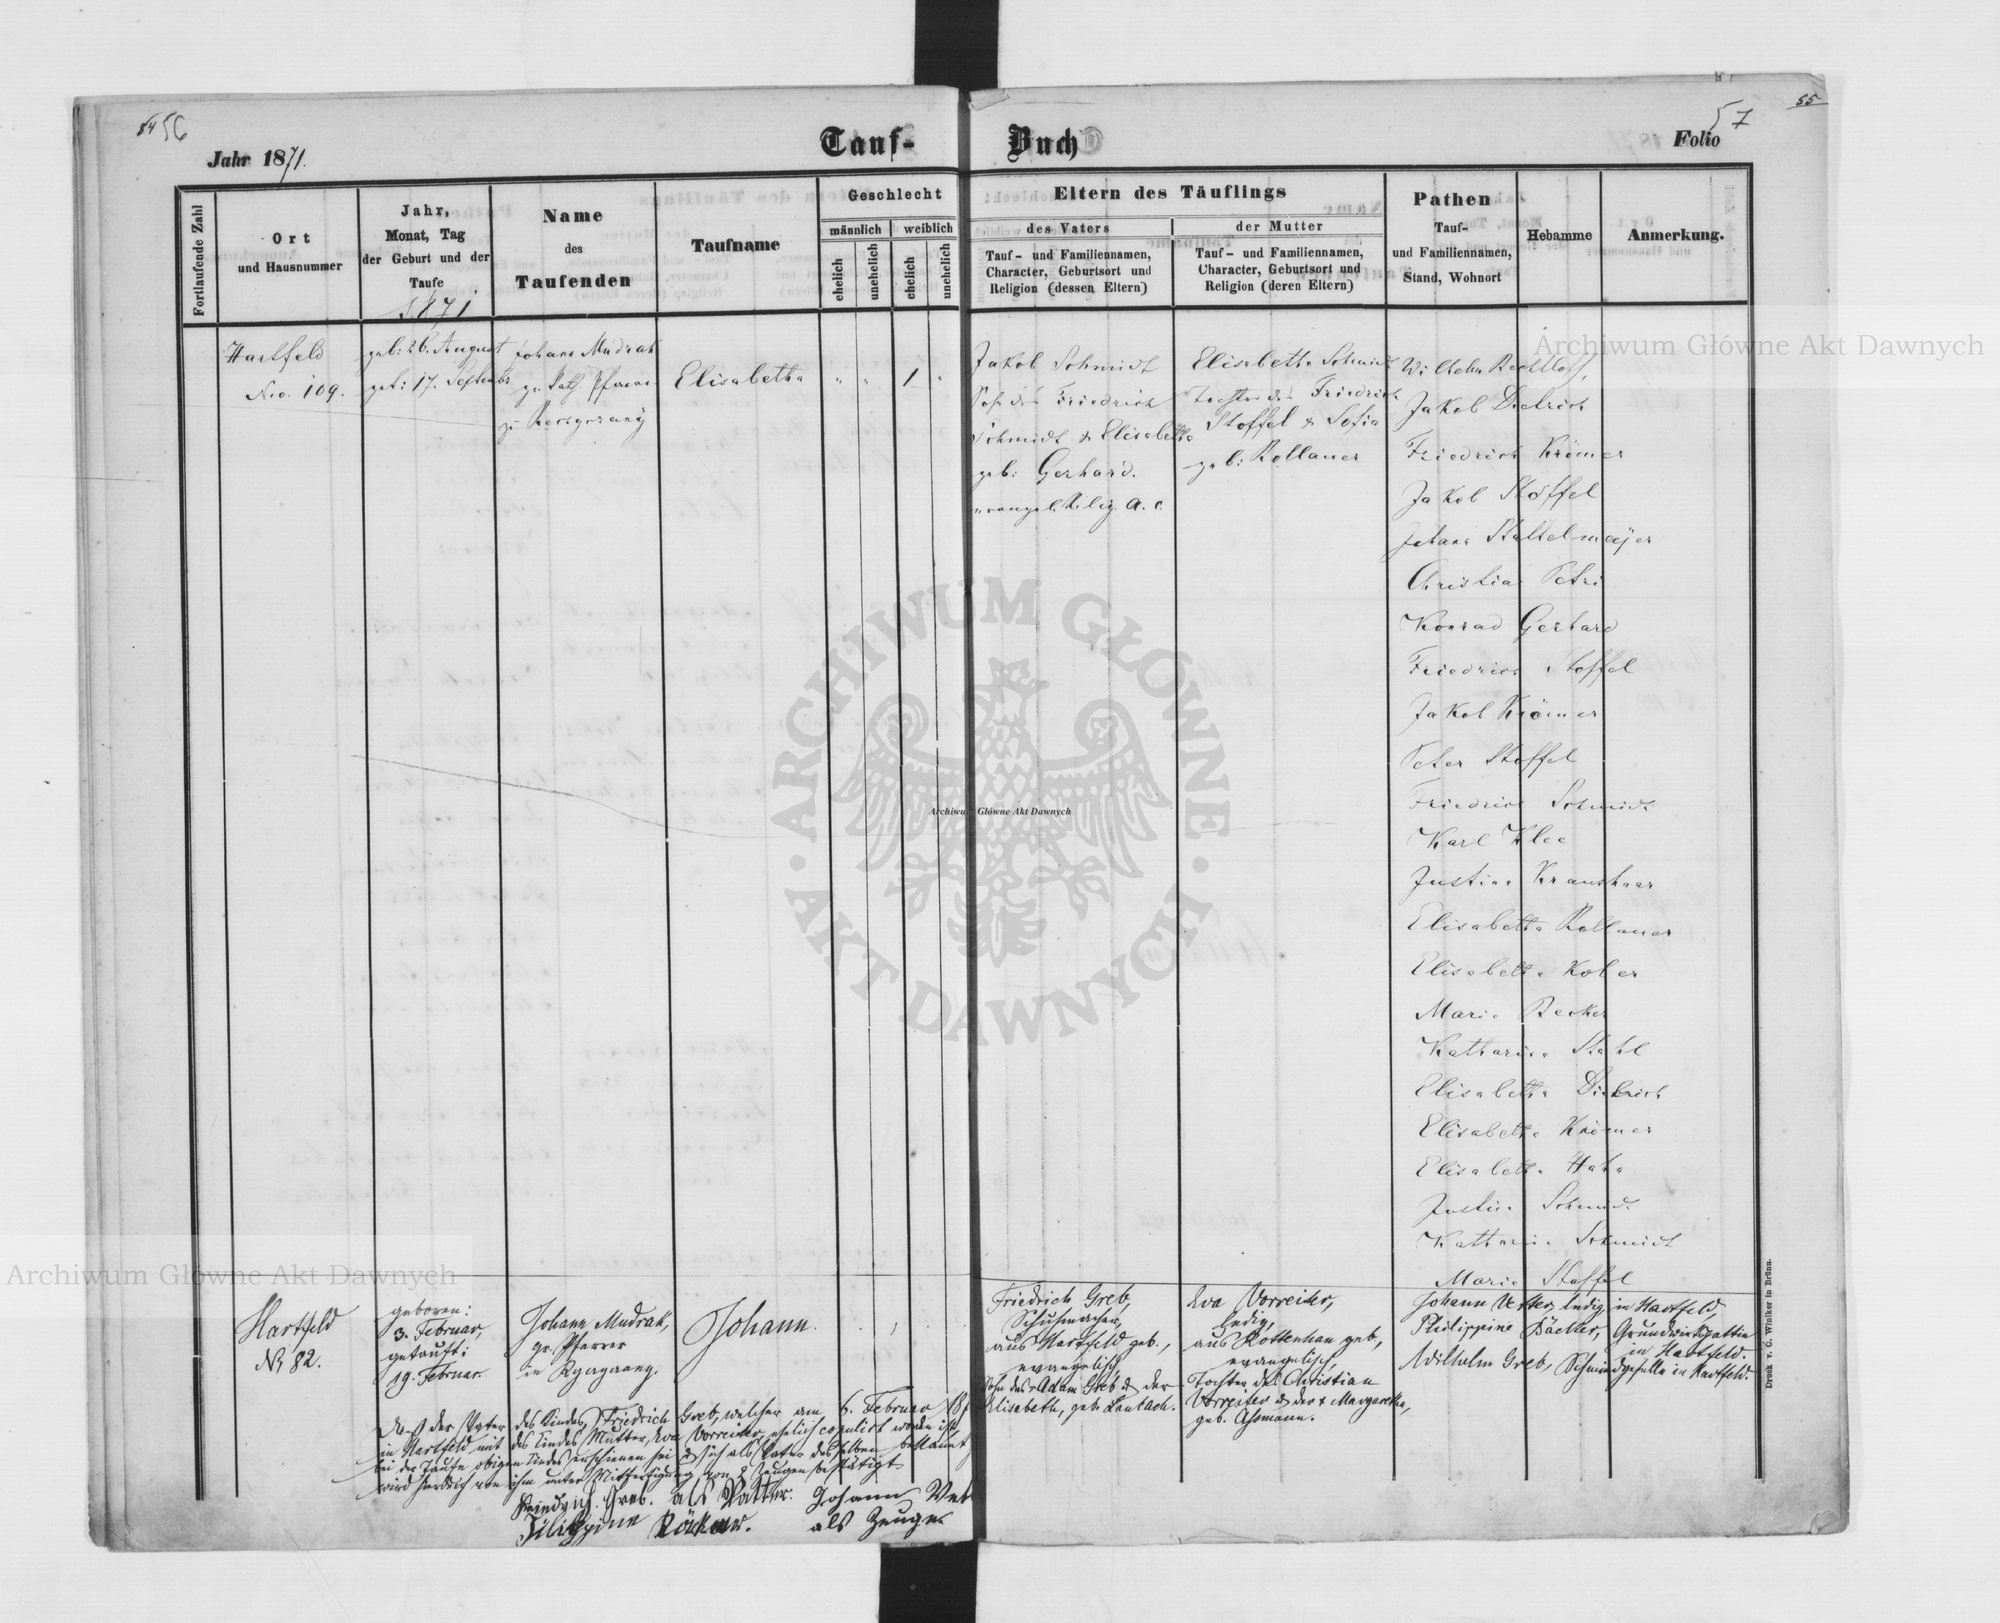 54 56
Jahr 1871.
Tauf-
Buch
57
55
Folio
Fortlaufende Zahl
Ort
und Hausnummer
Jahr,
Monat, Tag
der Geburt und der
Taufe
1871
Name
des
Taufenden
Taufname
Geschlecht
männlich
weiblich
ehelich
unehelich
ehelich
unehelich
Eltern des Täuflings
des Vaters
Tauf- und Familiennamen,
Character, Geburtsort und
Religion (dessen Eltern)
der Mutter
Tauf- und Familiennamen,
Character, Geburtsort und
Religion (deren Eltern)
Pathen
Tauf-
und Familiennamen,
Stand, Wohnort
Hebamme
Anmerkung.
Hartfeld
Nro. 109.
geb: 26. August
get: 17. Septembr
Johann Mudrak
gr. kath. Pfarrer
zu
Elisabetha
" " 1 "
Jakob Schmidt
Sohn des Friedrich
Schmidt & Elisabetha
geb: Gerhard.
evangel. Relig. A. C.
Elisabetha Schmidt
Tochter des Friedrich
Stoffel & Sofia
geb: Rollauer
Wilhelm
Jakob Dietrich
Friedrich Krömer
Jakob Stoffel
Johann
Christian Petri
Konrad Gerhard
Friedrich Stoffel
Jakob Krömer
Peter Stoffel
Friedrich Schmidt
Karl Klee
Justina Kraushaar
Elisabetha Rollauer
Elisabetha Kober
Maria Becker
Katharina Stahl
Elisabetha Dietrich
Elisabetha Krömer
Elisabetha Hahn
Justina Schmidt
Katharina Schmidt
Maria Stoffel
Hartfeld
Nr 82.
geboren:
3. Februar,
getauft:
19. Februar.
Johann Mudrak,
gr. Pfarrer
in
Johann.
Friedrich Greb,
Schuhmacher,
aus Hartfeld geb.,
evangelisch
Sohn des Adam Greb & der
Elisabeth, geb. Laubach.
Eva Vorreiter,
ledig,
aus Rottenhan geb,
evangelisch,
Tochter des Christian
Vorreiter & der † Margaretha,
geb. Assmann.
Johann Vetter, ledig, in Hartfeld,
Philippine Bäcker, Grundwirthsgattin
in Hartfeld.
Wilhelm Greb, Schmiedgeselle in Hartfeld.
Daß der Vater des Kindes, Friedrich Greb, welcher am 6. Februar 187
in Hartfeld mit des Kindes Mutter, Eva Vorreiter, ehelich copulirt worden ist,
bei der Taufe obigen Kindes erschienen sei & sich als Vater desselben bekannt
wird hierdurch von ihm unter Mitfertigung von 2 Zeugen bestätigt.
Friedrich Greb. als Vatter. Johann Vet
Filippine Bäker. als Zeuge
Druck v. C. Winiker in Brünn.
Archiwum Główne Akt Dawnych
Archiwum Główne Akt Dawnych
Archiwum Główne Akt Dawnych
ARCHIWUM GŁÓWNE · AKT DAWNYCH ·